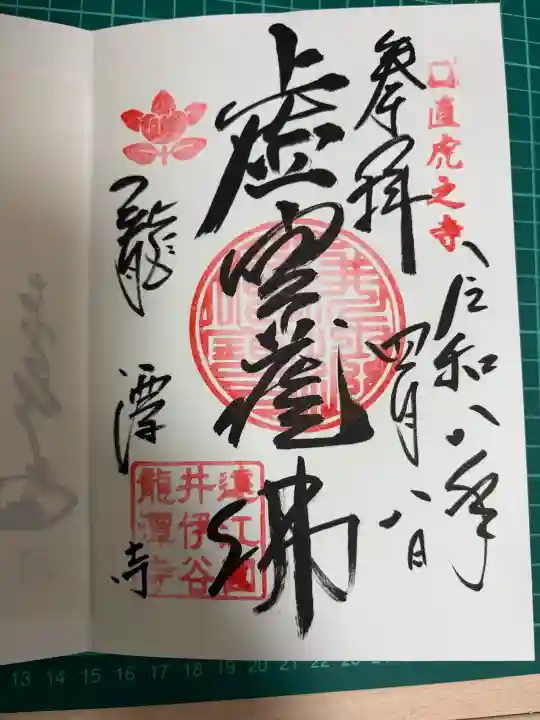 直虎之寺
奉拝
令和八年
四月八日
虚空蔵佛
龍潭寺
遠江國
井伊谷
龍潭寺
13 14 15 16 17 18 19 20 21